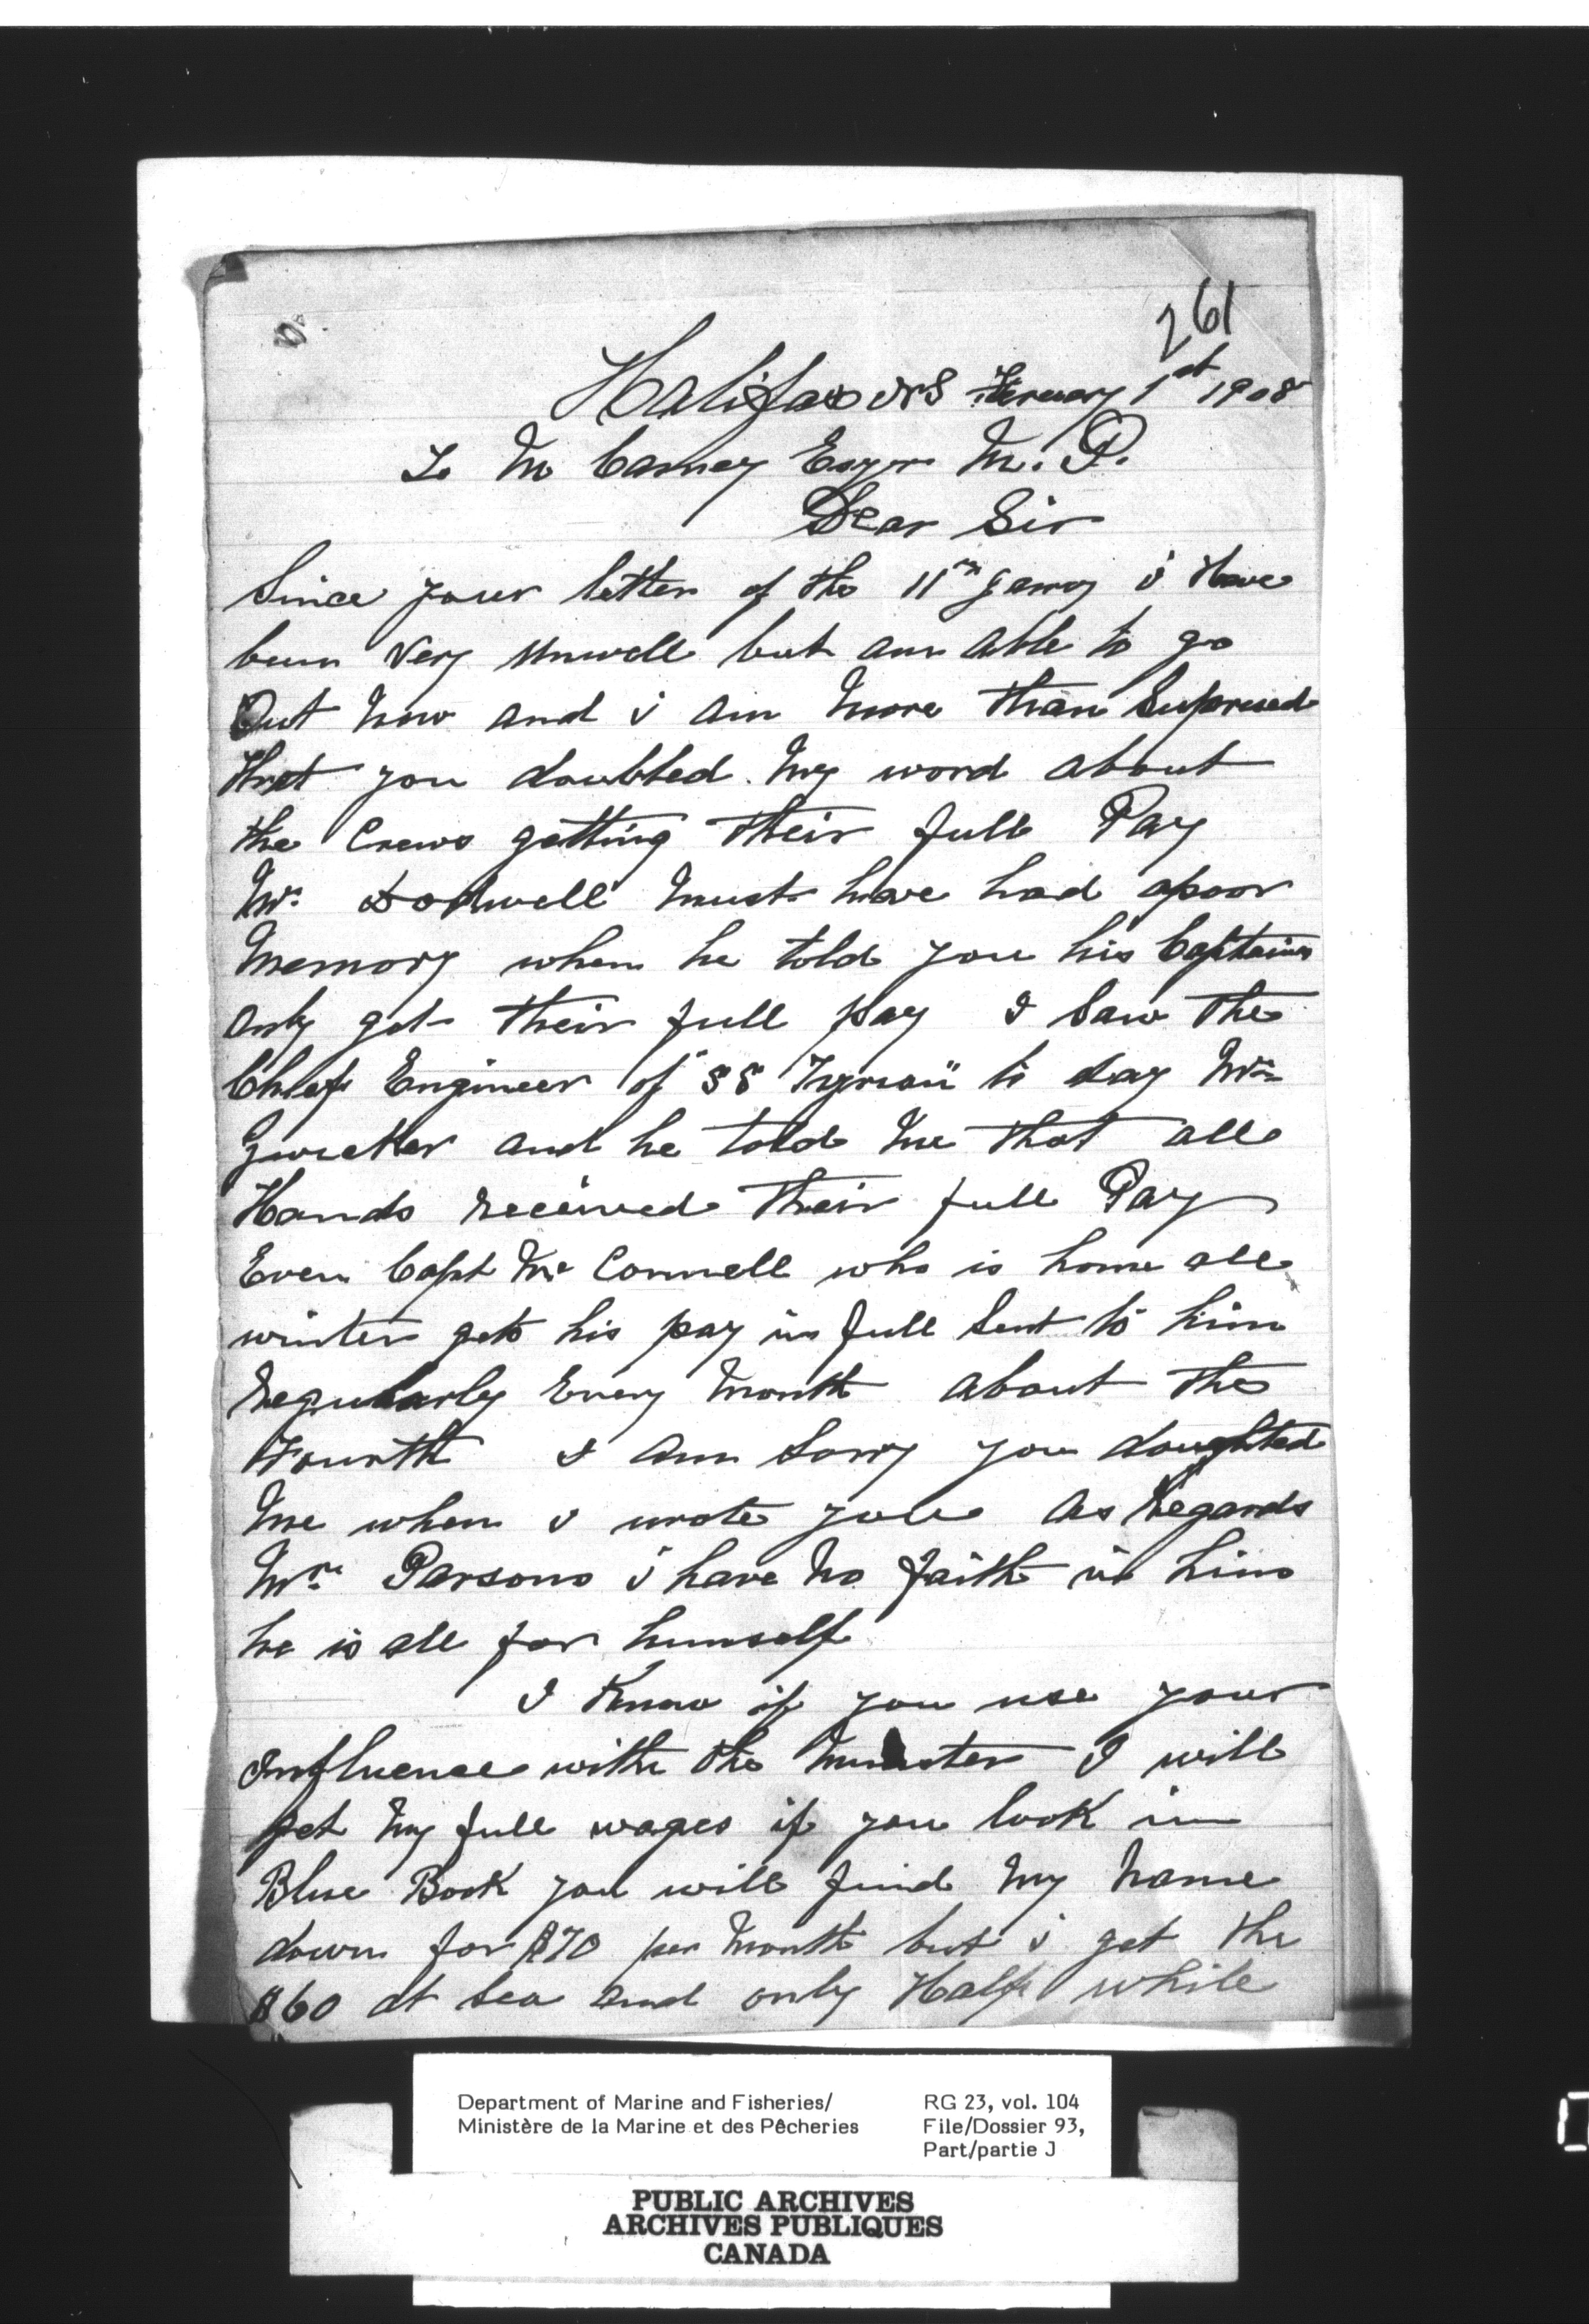 261
Halifax NS Feruary 1st 1908
To M Carney Esqr M.P.
Dear Sir
Since your letter of the 11th i Have
been Very Unwell but am able to go
Out now and i am more than Suprised
that you doubted my word about
the Crews getting their full Pay
Mr. Dodwell must have had apoor
Memory when he told you his Captains
only got their full pay I Saw the
Chief Engineer of SS Tyrian to day Mr
and he told me that all
Hands received their full Pay
Even Capt Mc Connell who is home all
winter gets his pay in full Sent to him
regularly Every month about the
Fourth I am Sorry you doughted
me when i wrote you as Regards
Mr. Parsons i have no faith in him
he is all for himself
I Know if you use your
Influence with the Minister I will
get my full wages if you look in
Blue Book you will find my name
down for $70 per Month but i get the
$60 at Sea and only Half while
Department of Marine and Fisheries/
Ministère de la Marine et des Pêcheries
RG 23, vol. 104
File/Dossier 93,
Part/partie J
PUBLIC ARCHIVES
ARCHIVES PUBLIQUES
CANADA